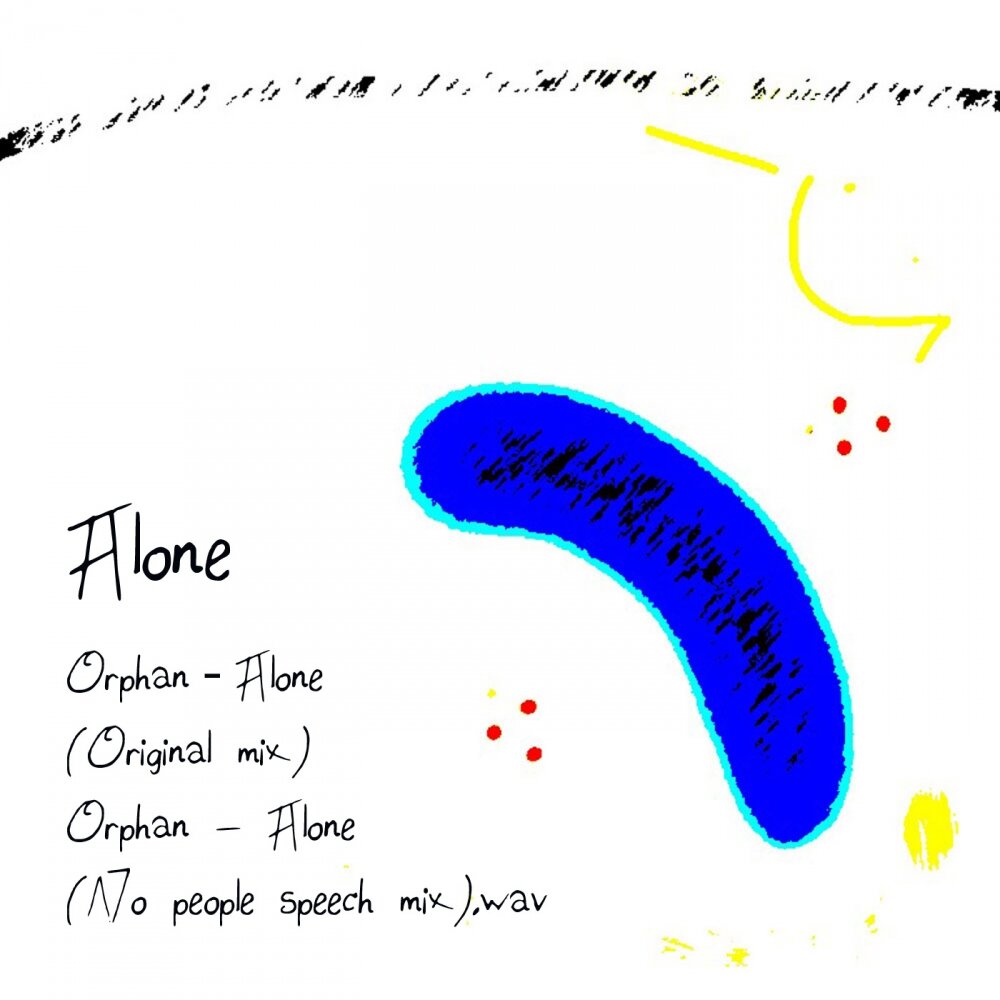 Alone
Orphan - Alone
(Original mix)
Orphan - Alone
(No people speech mix).wav